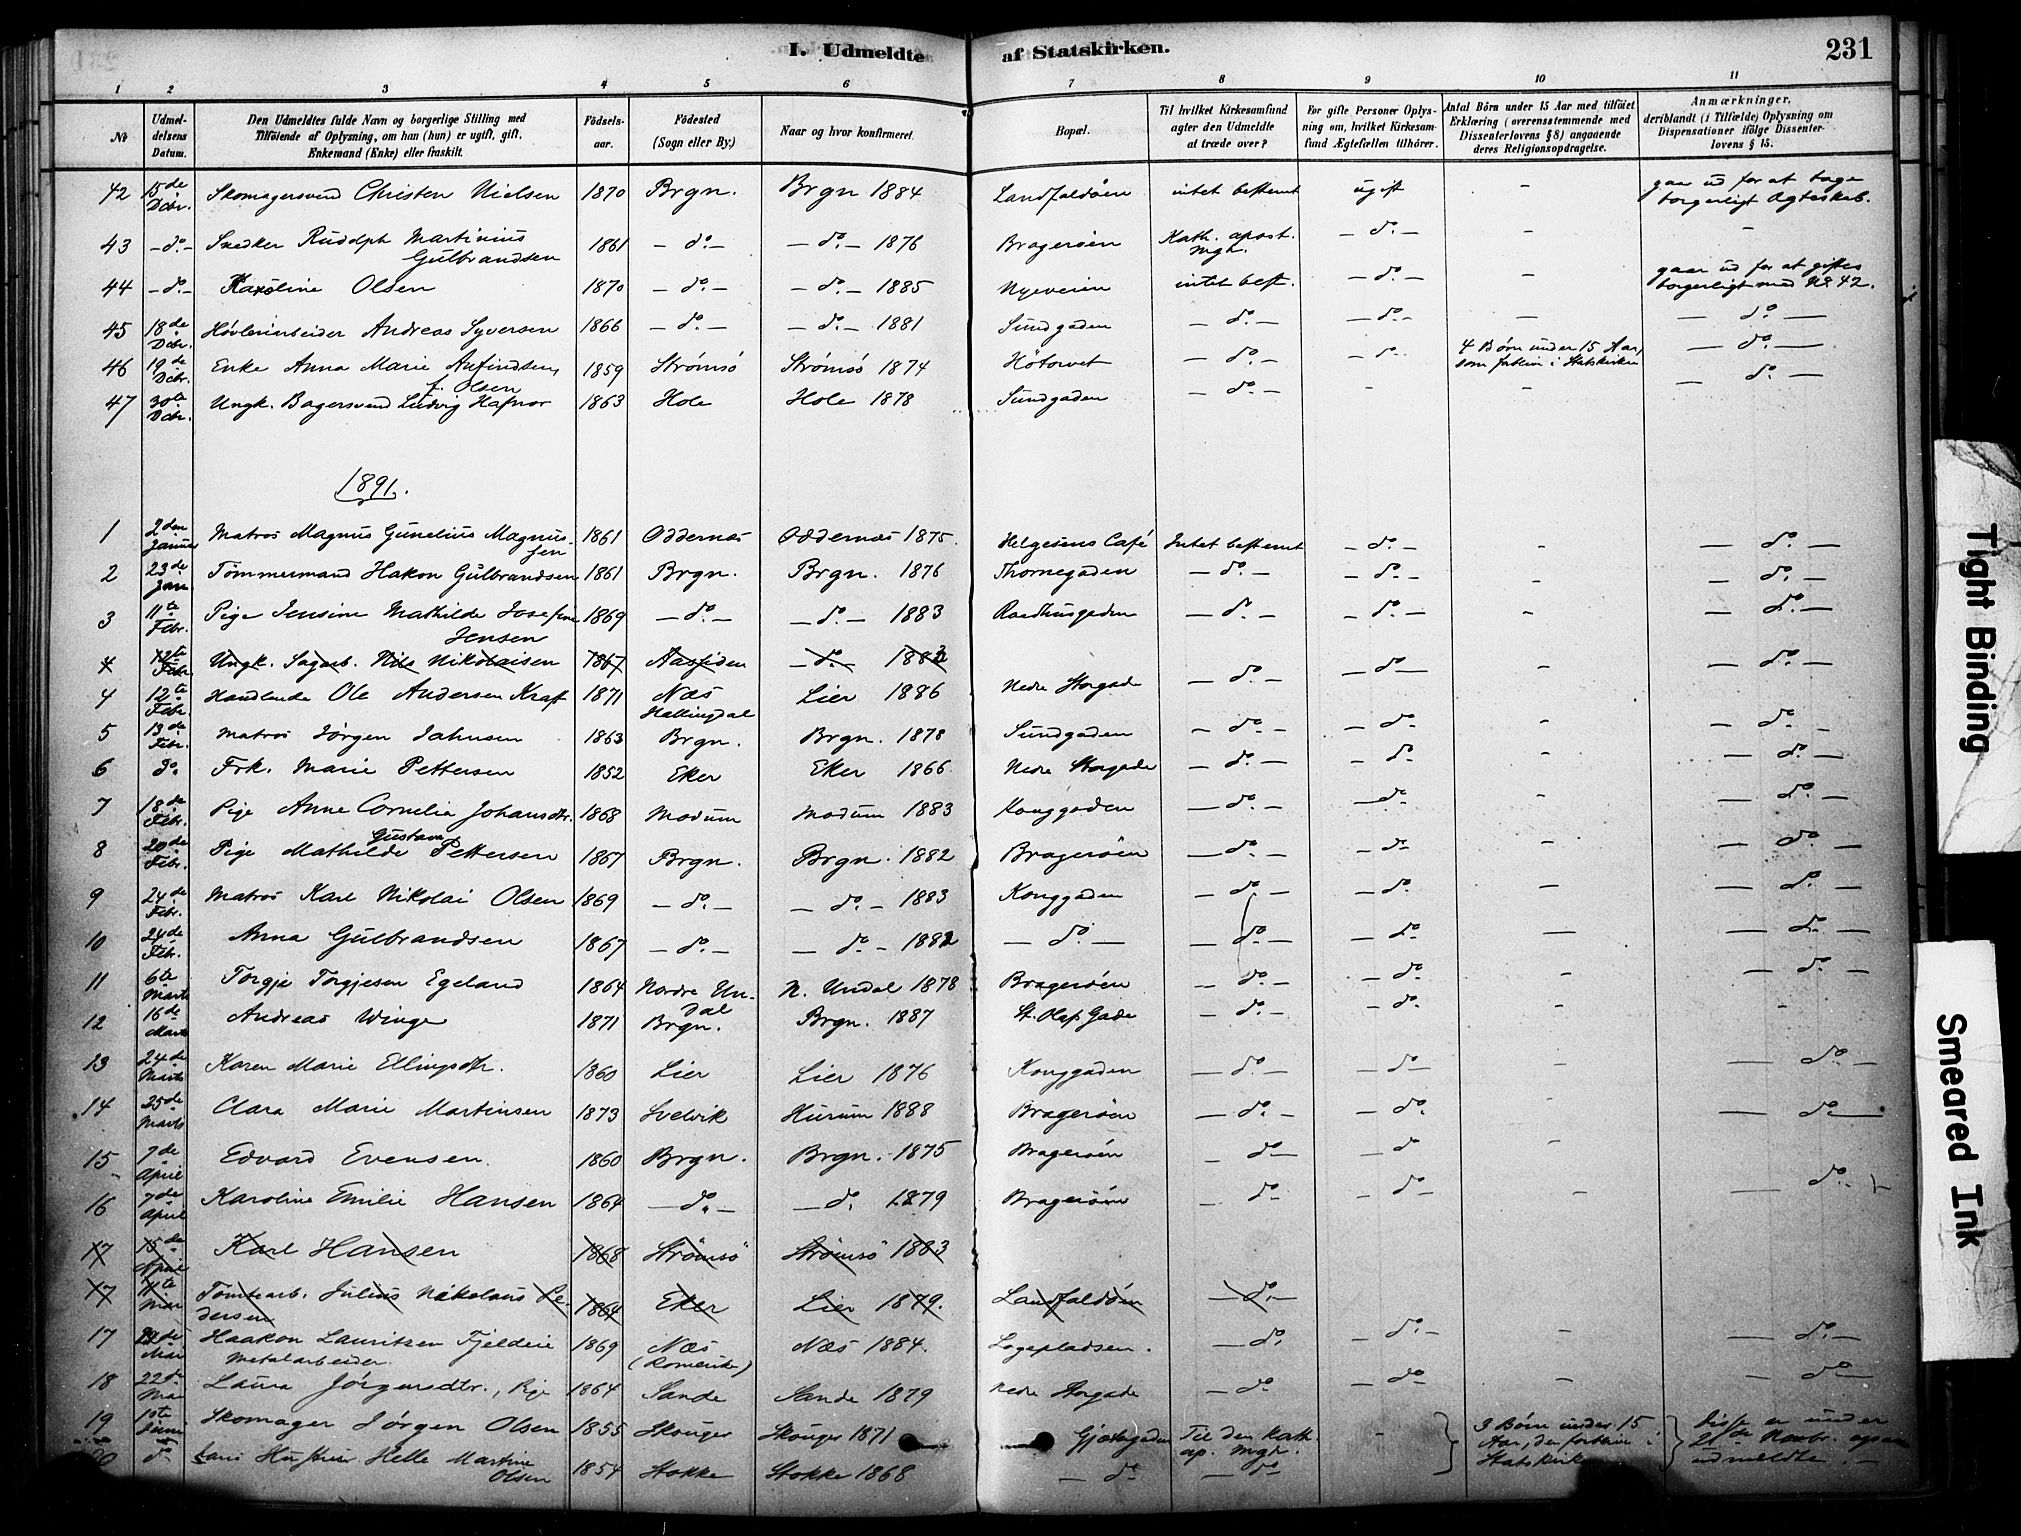 I. Udmeldte af Statskirken.
231
1 2 3 4 5 6 7 8 9 10 11
№
Udmeldelsens Datum.
Den Udmeldtes fulde Navn og borgerlige Stilling med
Tilføiende af Oplysning, om han (hun) er ugift, gift,
Enkemand (Enke) eller fraskilt.
Fødselsaar.
Fødested
(Sogn eller By.)
Naar og hvor konfirmeret.
Bopæl.
Til hvilket Kirkesamfund
agter den Udmeldte
at træde over?
For gifte Personer Oplys-
ning om, hvilket Kirkesam-
fund Ægtefællen tilhører.
Antal Børn under 15 Aar med tilføiet
Erklæring (overensstemmende med
Dissenterlovens § 8) angaaende
deres Religionsopdragelse.
Anmærkninger,
deriblandt (i Tilfælde) Oplysning om
Dispensationer ifølge Dissenter-
lovens § 15.
42 15de Dcbr. Skomagersvend Christen Nielsen 1870 Brgn. Brgn 1884 Landfaldøen intet bestemt ugift - gaar ud for at tage borgerligt Ægteskab.
43 - do - Snedker Rudolph Martinius Gulbrandsen 1861 - do - - do - 1876 Bragerøen Kath. apost. Mgh. - do - - -
44 - do - Karoline Olsen 1870 - do - - do - 1885 Nyeveien intet best. - do - - gaar ud for at giftes borgerligt med No. 42.
45 18de Dcbr. Høvleriarbeider Andreas Syversen 1866 - do - - do - 1881 Sundgaden - do - - do - - - do -
46 19de Dcbr. Enke Anna Marie Anfindsen, f. Olsen 1859 Strømsø Strømsø 1874 Høtorvet - do - - do - 4 Børn under 15 Aar, som forblive i Statskirken - do -
47 30te Dcbr. Ungk. Bagersvend Ludvig Hafnor 1863 Hole Hole 1878 Sundgaden - do - - - - do -
1891.
1 2den Januar Matros Magnus Gunelius Magnussen 1861 Oddernæs Oddernæs 1875. Helgesens Café Intet bestemt - do - - - do -
2 23de Jan Tømmermand Hakon Gulbrandsen 1861 Brgn. Brgn. 1876 Thornegaden - do - - do - - - do -
3 11te Febr. Pige Jensine Mathilde Josefine Jensen 1869 - do - - do - 1883 Raadhusgaden - do - - do - - - do -
4 12te Febr. Ungk. Sagarb. Nils Nikolaisen 1867 Aassiden - do - 1882
4 12te Febr. Handlende Ole Andersen Kraft 1871 Næs Hallingdal Lier 1886 Nedre Storgade - do - - do - - do -
5 13de Febr. Matros Jørgen Jahnsen 1863 Brgn. Brgn. 1878 Sundgaden - do - - do - - - do -
6 do. Frk. Marie Pettersen 1852 Eker Eker 1866. Nedre Storgade - do - - do - - - do -
7 18de Febr. Pige Anne Cornelia Johansdtr. 1868 Modum Modum 1883 Konggaden - do - - do - - - do -
8 20de Febr. Pige Mathilde Gustava Pettersen 1867 Brgn. Brgn. 1882 Bragerøen - do - - do - - - do -
9 24de Febr. Matros Karl Nikolai Olsen 1869 - do - - do - 1883 Konggaden - do - - do - - - do -
10 24de Febr. Anna Gulbrandsen 1867 - do - - do - 1882 - do - - do - - do - - - do -
11 6te Marts Torgje Torgjesen Egeland 1864 Nordre Undal N. Undal 1878 Bragerøen - do - - do - - - do -
12 16de Marts Andreas Winge 1871 Brgn. Brgn. 1887 St. Olafs Gade - do - - do - - -
13 24de Marts Karen Marie Ellingsdtr. 1860 Lier Lier 1876 Konggaden - do - - do - - - do -
14 25de Marts Clara Marie Martinsen 1873 Svelvik Hurum 1888 Bragerøen - do - - do - - - do -
15 7de April Edvard Evensen. 1860 Brgn. Brgn. 1875 Bragerøen - do - - do -
16 7de April Karoline Emilie Hansen 1864 - do - - do. 1879 Bragerøen - do - do - - - do -
17 15de April Karl Hansen 1868 Strømsø Strømsø 1883
17 11te Mai Tomtearb. Julius Nikolaus Pedersen 1864 Eker Lier 1879. Landfaldøen - do -
17 22de Mai Haakon Lauritsen Fjeldeie Metalarbeider. 1869 Næs (Romerike) Næs 1884. Løgepladsen. - do. - do - - - do -
18 22de Mai Laura Jørgensdtr., Pige 1864 Sande Sande 1879 Nedre Storgade - do - do - - - do -
19 10te Juni Skomager Jørgen Olsen 1855 Skouger Skouger 1871 Gjætergaden Til den kath. ap. Mgh. - 3 Børn under 15 Aar, der forblive i Statskirk Disse er under 21de Novbr. udmeldte. -
20 do Hans Hustru Helle Martine Olsen 1854 Stokke Stokke 1868 - do - do
Tight Binding
Smeared Ink